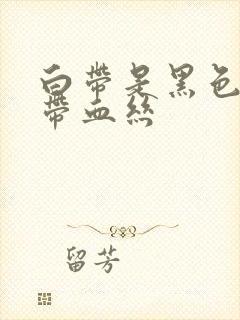 白帶是黑色
帶血絲
留芳